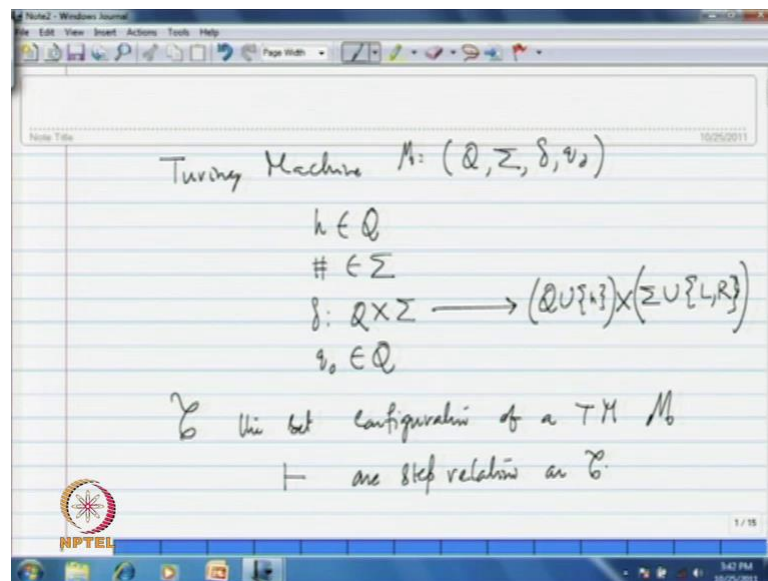 Note2 - Windows Journal
File Edit View Insert Actions Tools Help
Page Width
Note Title
10/25/2011
Turing Machine M: (Q, Σ, δ, q₀)
h ∈ Q
# ∈ Σ
δ: Q X Σ ⟶ (Q U {h}) X (Σ U {L, R})
q₀ ∈ Q
𝒞 the set configuration of a TM M
⊢ one step relation on 𝒞.
1 / 15
NPTEL
3:42 PM
10/25/2011